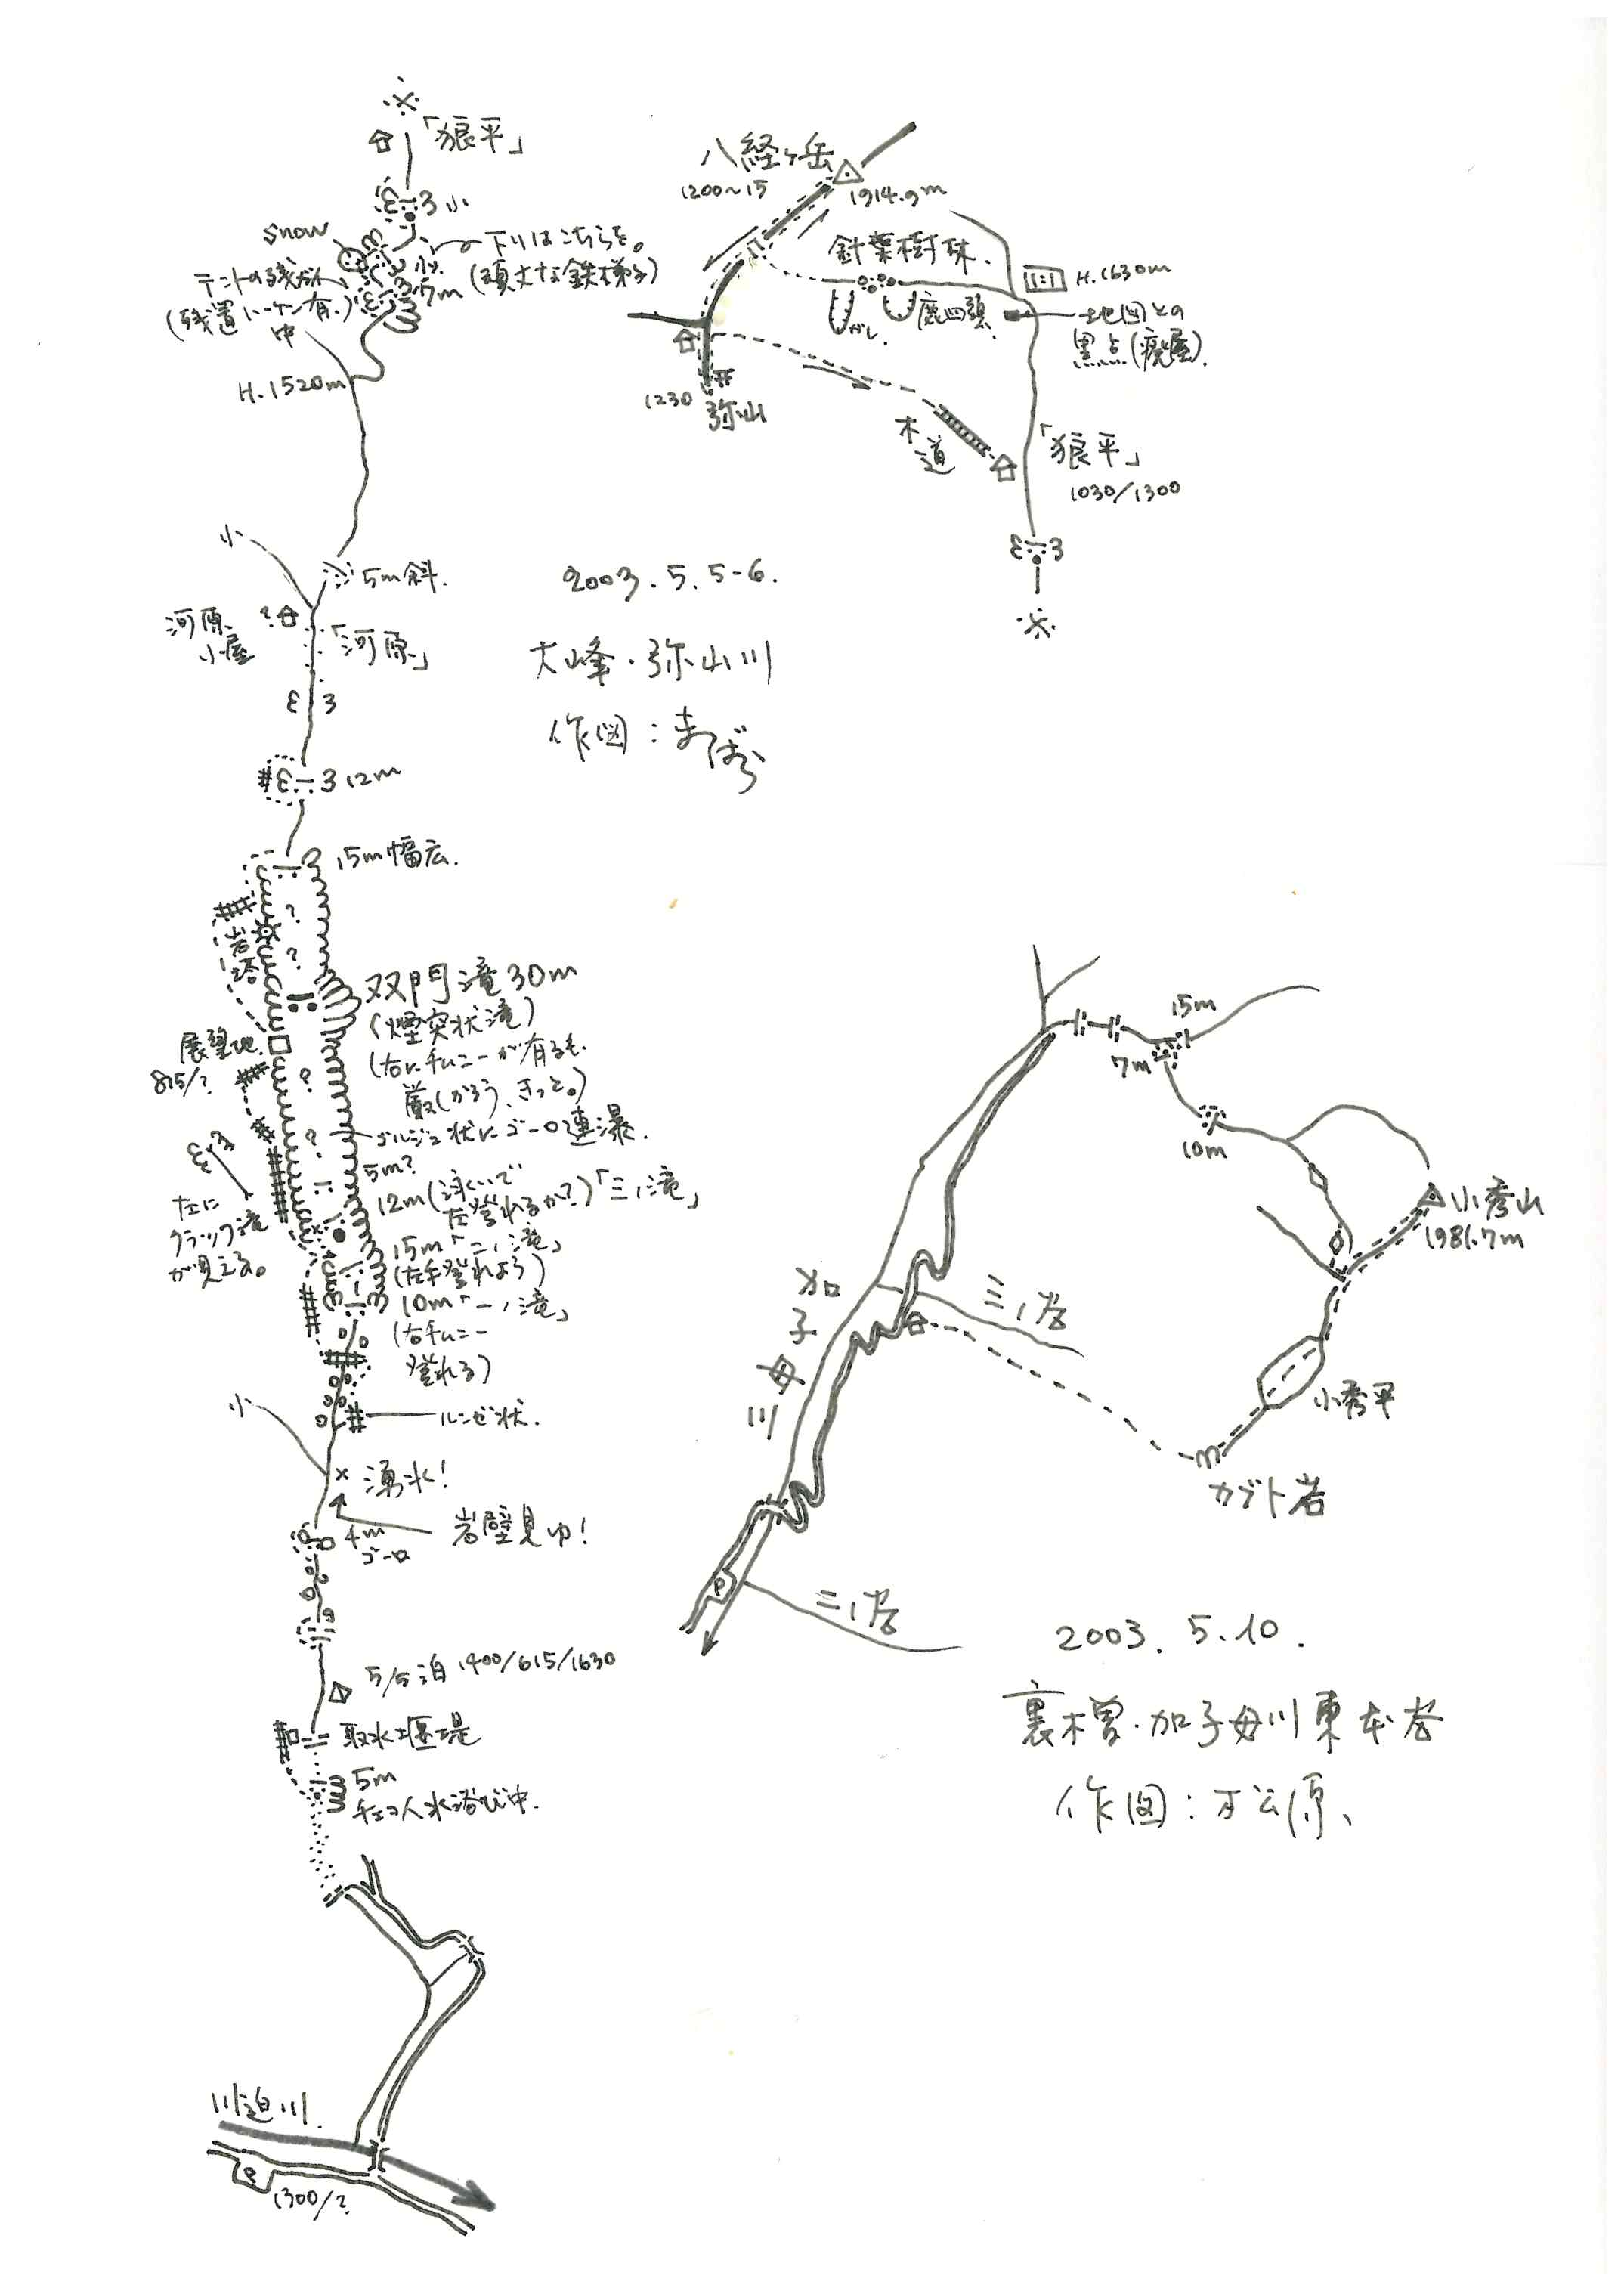 「狼平」
小
snow
下りはこちらを。
(頑丈な鉄梯子)
小
5m
(残置ハーケン有。)
中
H.1520m
小
5m斜.
河原
小屋
?
「河原」
12m
15m幅広.
?
岩塔
?
双門滝30m
(煙突状滝)
(右にチムニーが有るも.
厳しかろう、きっと。)
展望地
815/?
?
?
ゴルジュ状にゴーロ連瀑.
5m?
12m(泳いで
左登れるか?)「三ノ滝」
左に
クラック滝
が見える。
15m「二ノ滝」
(左手登れよう)
10m「一ノ滝」
(右チムニー
登れる)
ルンゼ状.
小
× 湧水!
岩壁見ゆ!
4m
ゴーロ
5/5泊 1400/615/1630
取水堰堤
5m
チェコ人水浴び中.
川迫川.
P
1300/?
八経ヶ岳
1200~15
1914.9m
針葉樹林.
H.1630m
ガレ.
鹿四頭
地図との
黒点(廃屋).
1230
弥山
木道
「狼平」
1030/1300
2003.5.5-6.
大峰・弥山川
作図:まつばら
15m
7m
10m
小秀山
1981.7m
加子母川
三ノ谷
小秀平
カブト岩
P
二ノ谷
2003.5.10.
裏木曽・加子母川東本谷
作図:マツ原、